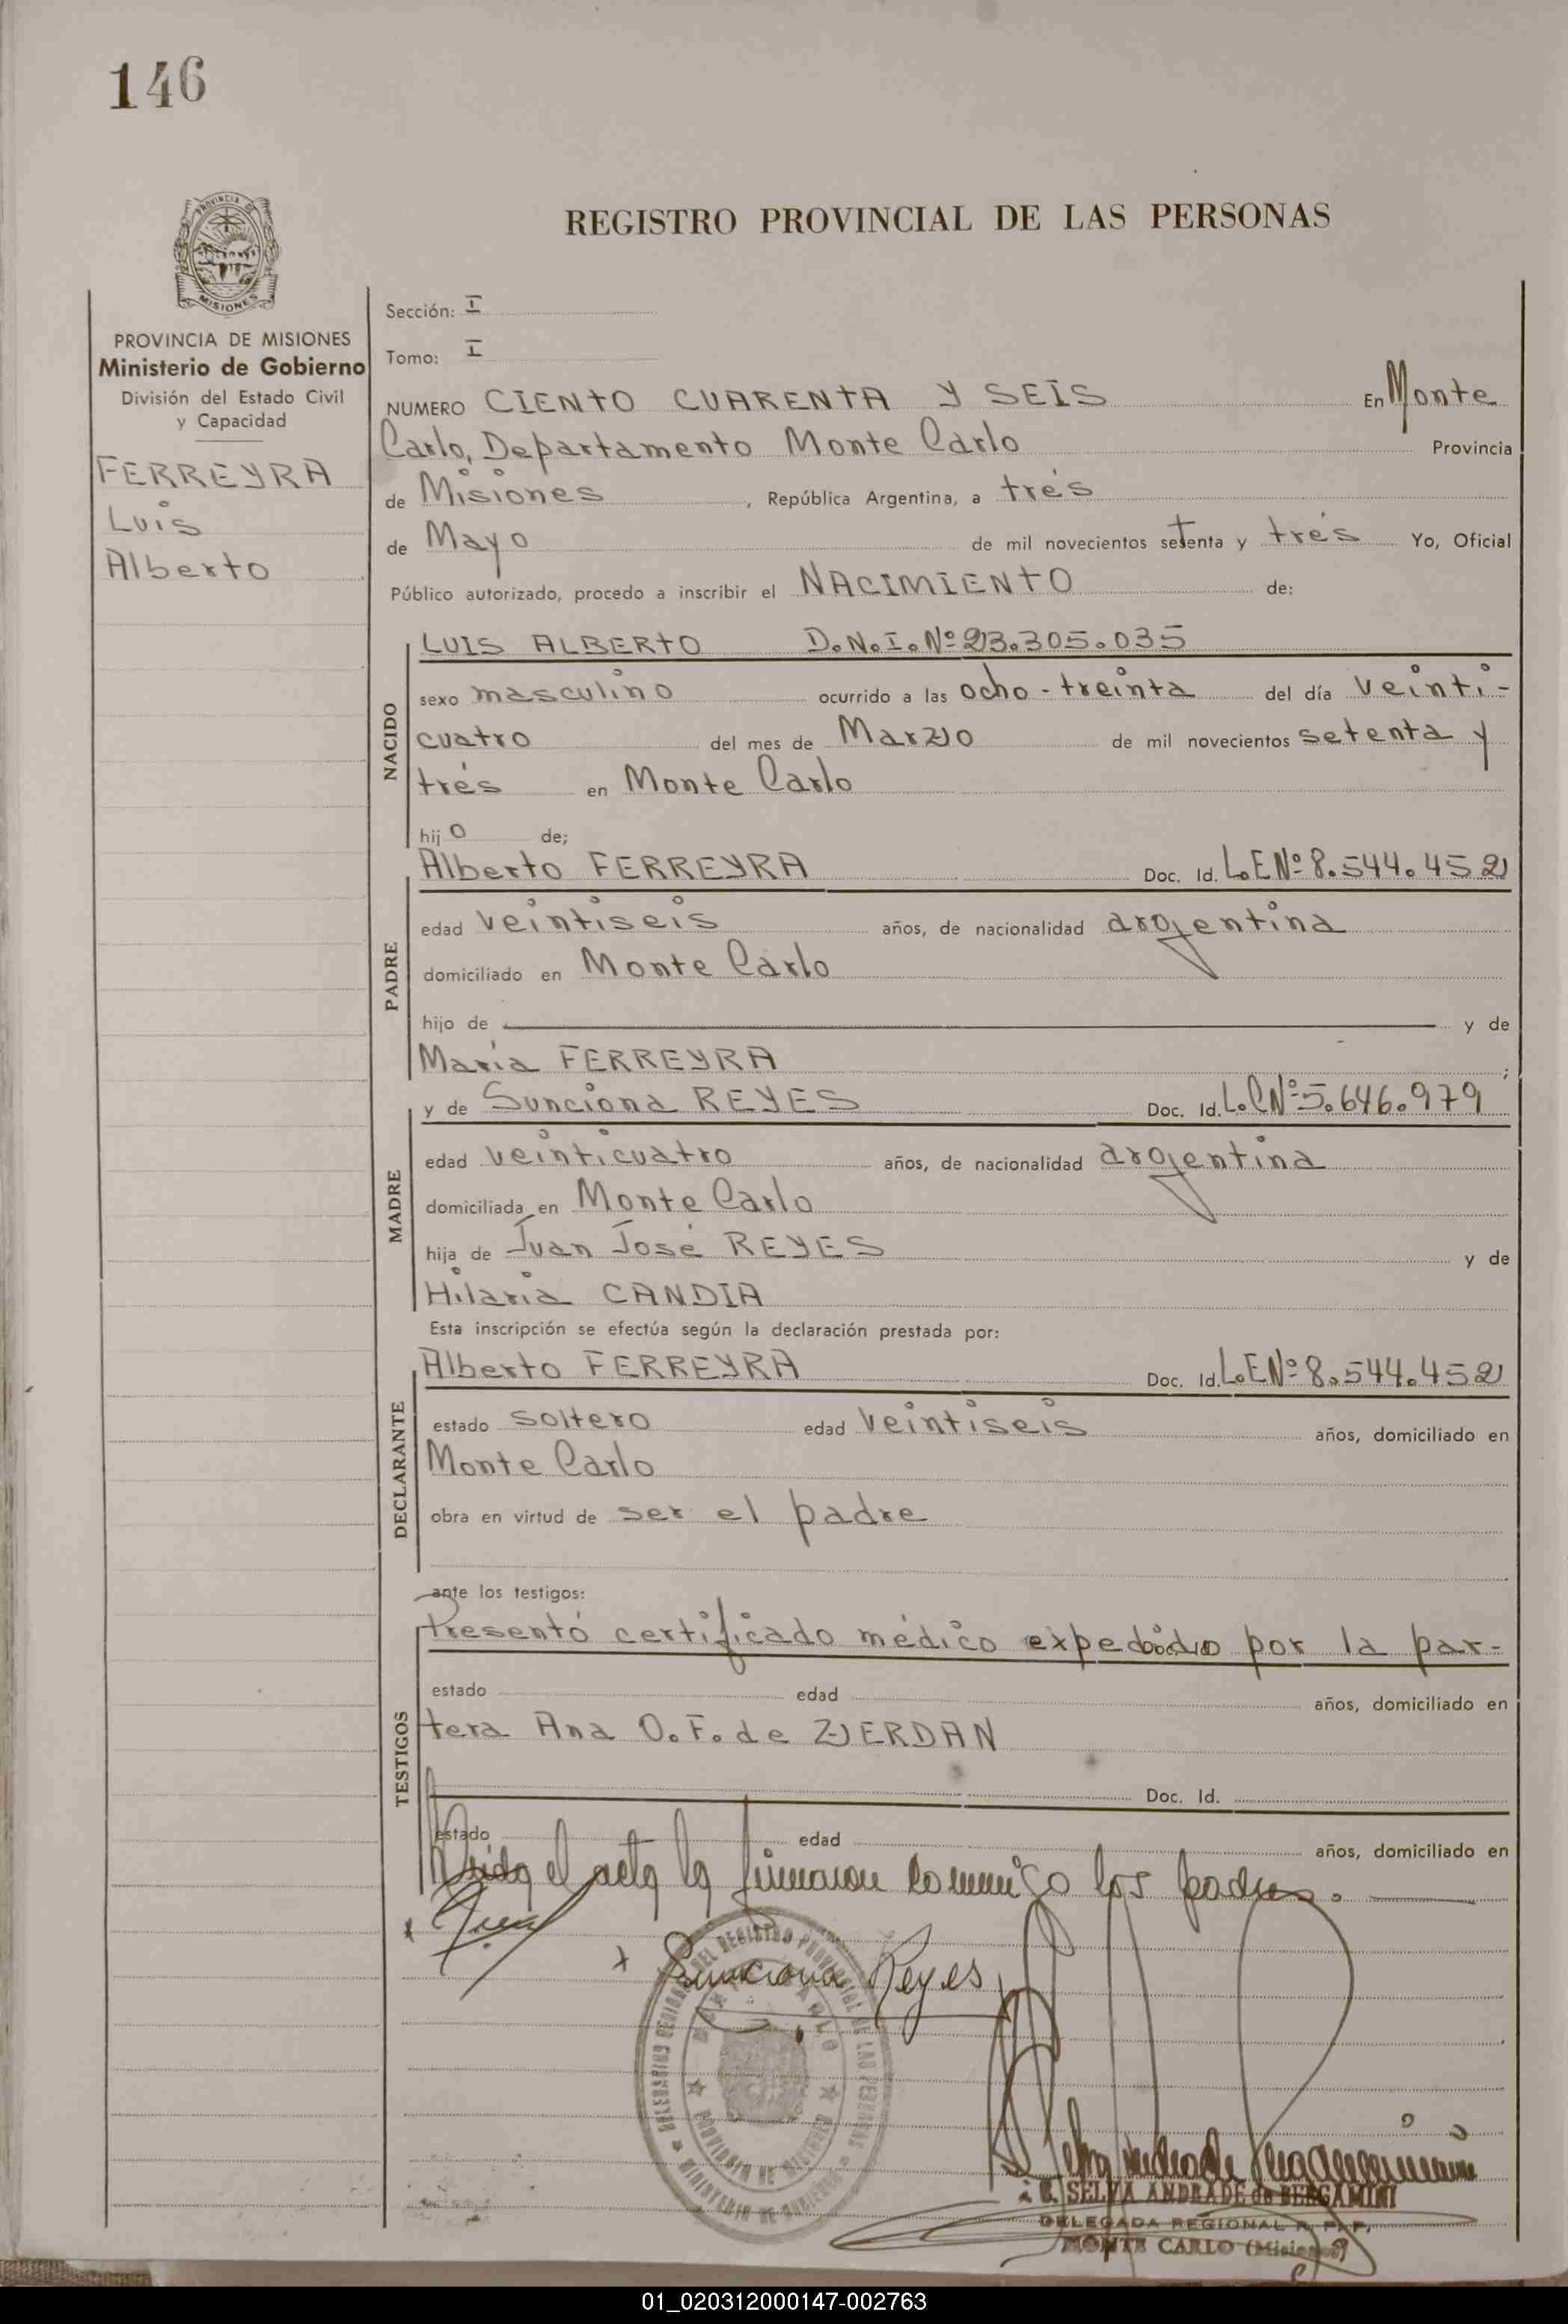 146
REGISTRO PROVINCIAL DE LAS PERSONAS
PROVINCIA DE MISIONES
Ministerio de Gobierno
División del Estado Civil
y Capacidad
FERREYRA
Luis
Alberto
Sección: I
Tomo: I
NUMERO CIENTO CUARENTA Y SEIS En Monte
Carlo, Departamento Monte Carlo Provincia
de Misiones, República Argentina, a trés
de Mayo de mil novecientos setenta y trés Yo, Oficial
Público autorizado, procedo a inscribir el NACIMIENTO de:
NACIDO
LUIS ALBERTO D.N.I. Nº 23.305.035
sexo masculino ocurrido a las ocho-treinta del día veinti-
cuatro del mes de Marzo de mil novecientos setenta y
trés en Monte Carlo
hijo de;
PADRE
Alberto FERREYRA Doc. Id. L.E Nº 8.544.452
edad veintiseis años, de nacionalidad argentina
domiciliado en Monte Carlo
hijo de y de
María FERREYRA;
MADRE
y de Sunciona REYES Doc. Id. L.C Nº 5.646.979
edad veinticuatro años, de nacionalidad argentina
domiciliada en Monte Carlo
hija de Juan José REYES y de
Hilaria CANDIA
Esta inscripción se efectúa según la declaración prestada por:
DECLARANTE
Alberto FERREYRA Doc. Id. L.E Nº 8.544.452
estado soltero edad veintiseis años, domiciliado en
Monte Carlo
obra en virtud de ser el padre
ante los testigos:
TESTIGOS
Presentó certificado médico expedido por la par-
estado edad años, domiciliado en
tera Ana O.F. de ZERDAN
Doc. Id.
estado edad años, domiciliado en
Leida el acta la firmaron conmigo los padres.
Sunciona Reyes
SELVA ANDRADE de BERGAMINI
DELEGADA REGIONAL R. P. P.
MONTE CARLO (Misiones)
01_020312000147-002763